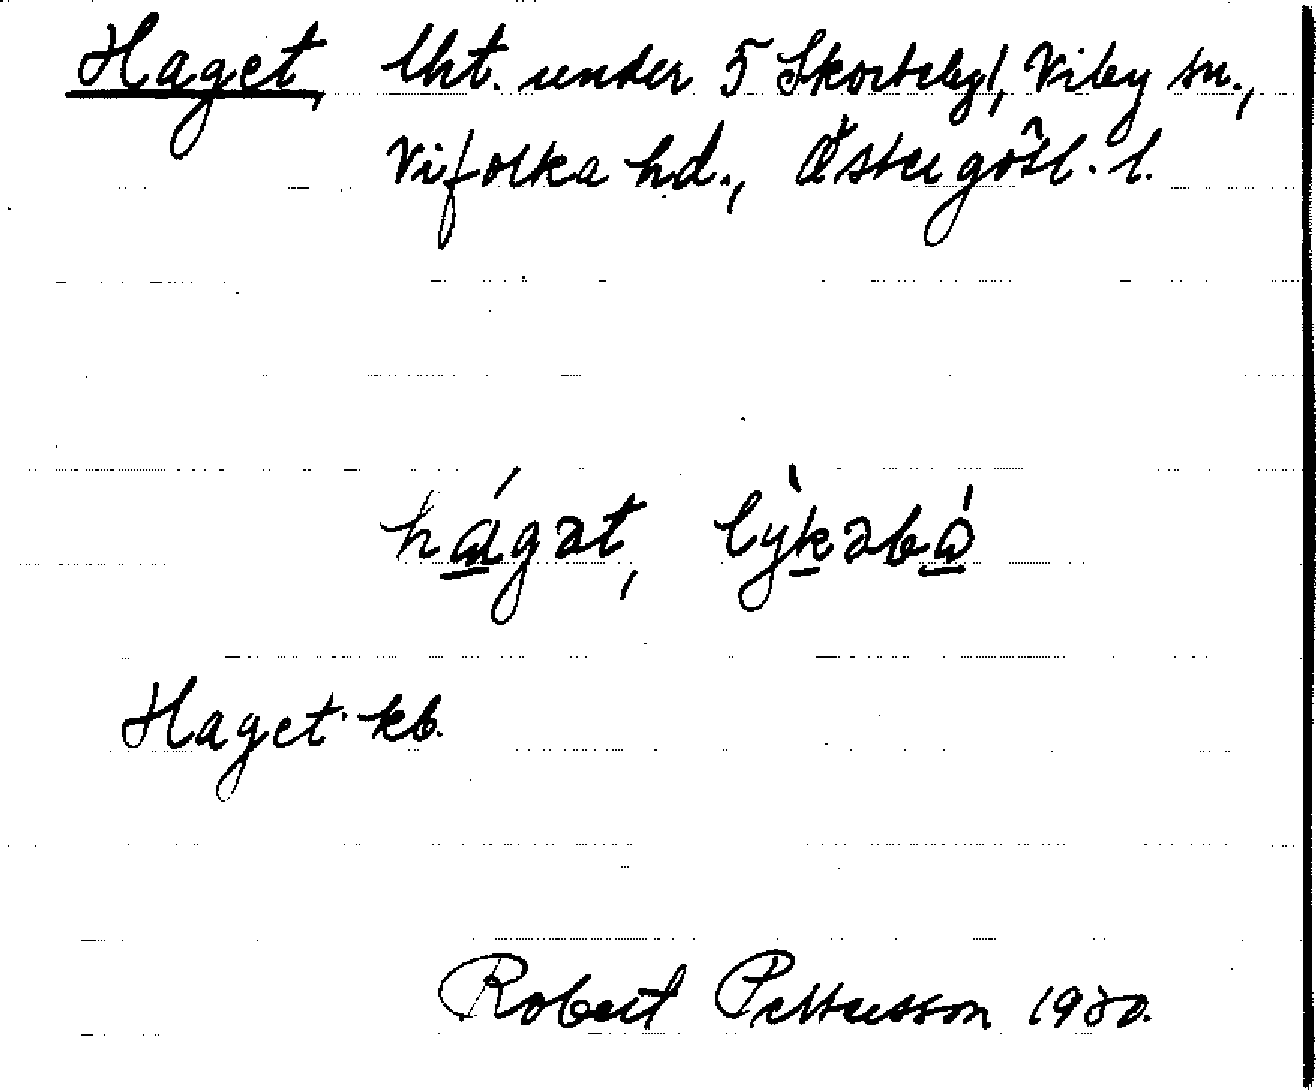 Haget, lht. under 5 Skorteby/, Viby sn.,
Vifolka hd., Östergötl. l.
hágət, lỳkəbó
Haget kb.
Robert Pettersson 1930.